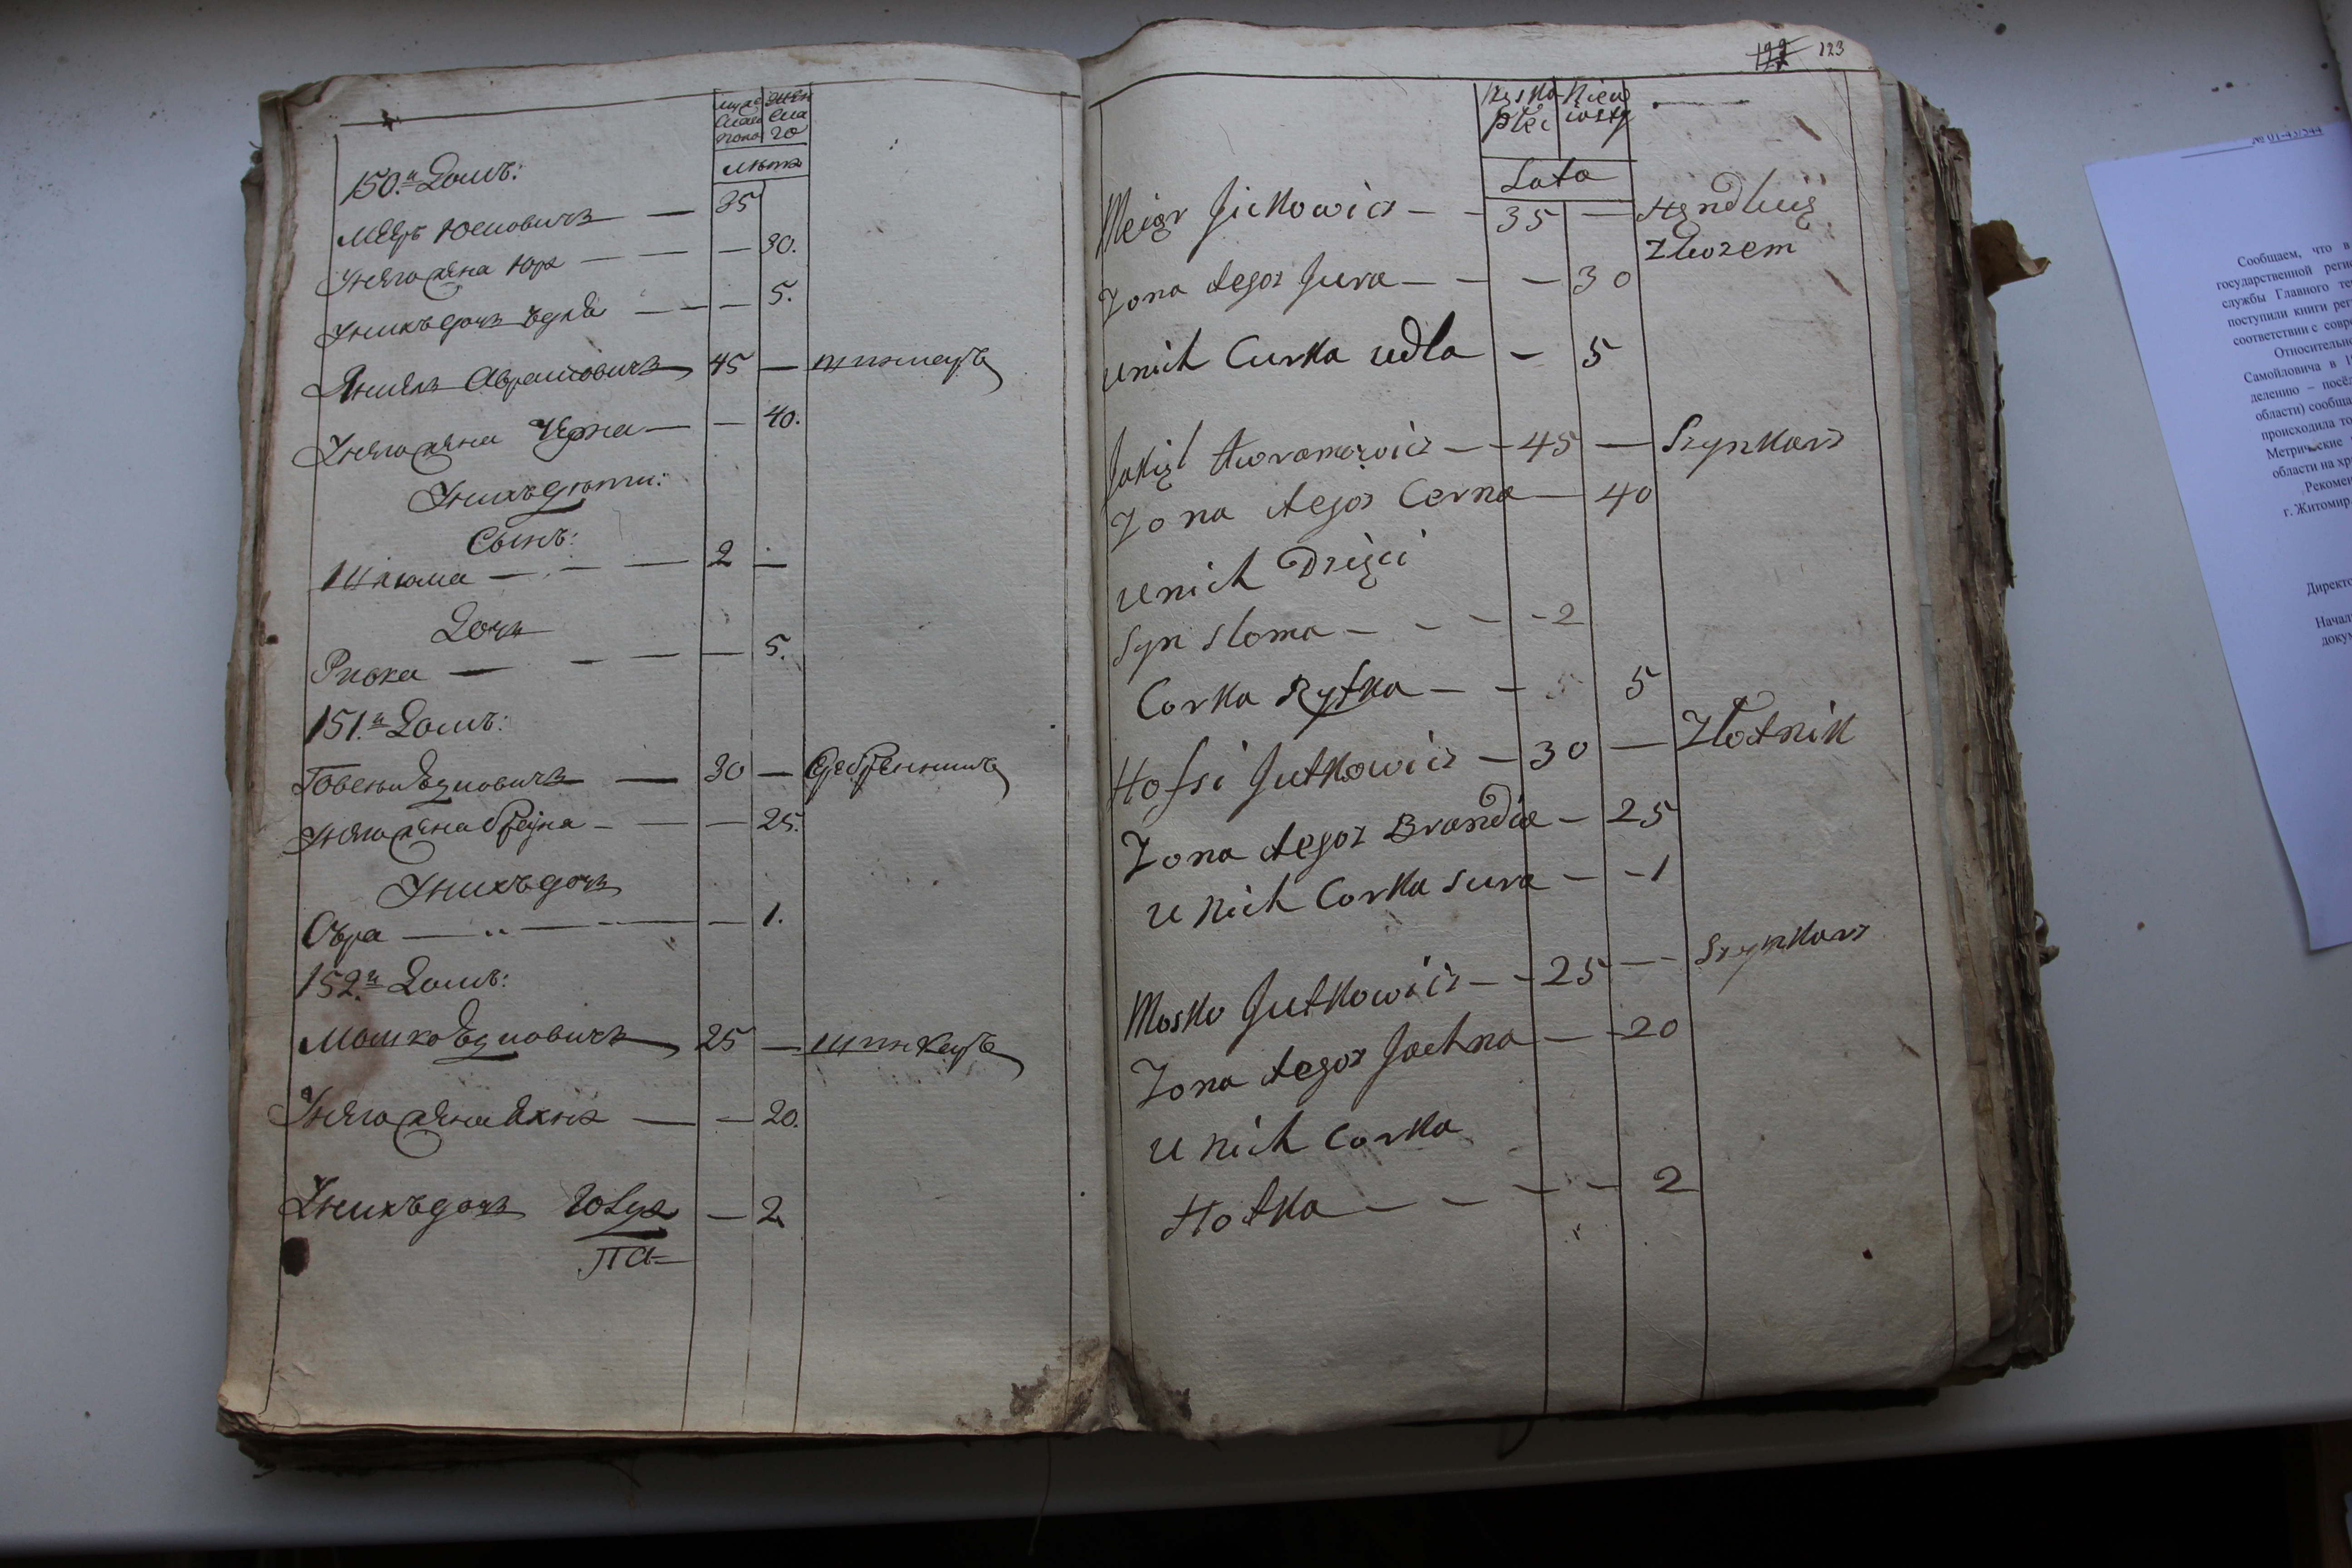 мужескаго
женскаго
Лѣта
150.й Домъ:
Меѣръ Юсиовичъ — 35
Унего жена Юра — — — 30.
Унихъ дочь Ѣдля — — — 5.
Янкель Аврамовичъ 45 — шинкаръ
Унего жена Черна — — 40.
Унихъ дѣти:
Сынъ:
Шлюма — — — 2 —
Дочь
Ривка — — — — 5.
151.й Домъ:
Іовсѣи Юдковичъ — 30 — Серебренникъ
Унего жена Брейна — — — 25.
Унихъ дочь
Сура — — — — 1.
152.й Домъ:
Мошко Юдковичъ 25 — шинкаръ
Унего жена Яхна — — 20.
Унихъ дочь — 2
па-
122 123
Męska płci
Niewiasty
Lata
Meier Jickowicz — — 35 — Hęndluią
Zbozem
Zona tegoz Jura — — — 30
unich Curka udla — 5
Jakięl Awramowicz — — 45 — Szynkarz
Zona tegoz Cerna — 40
unich Dzięci
Syn sloma — — — - 2
Corka Ryfka — — 5
Hofsi Jutkowicz — 30 — Złotnik
Zona tegoz Brandia — 25
u nich Corka sura — - 1
Mosko Jutkowicz — - 25 — Szynkarz
Zona tegoz Jachna — - 20
u nich corka
Hotka — — — — 2
№ 01-43/544
Сообщаем, что в
государственной реги
службы Главного те
поступили книги рег
соответствии с совр
Относительно
Самойловича в 1
делению – посё
области) сообща
происходила то
Метрические
области на хр
Рекомен
г. Житомир
Директо
Начал
доку